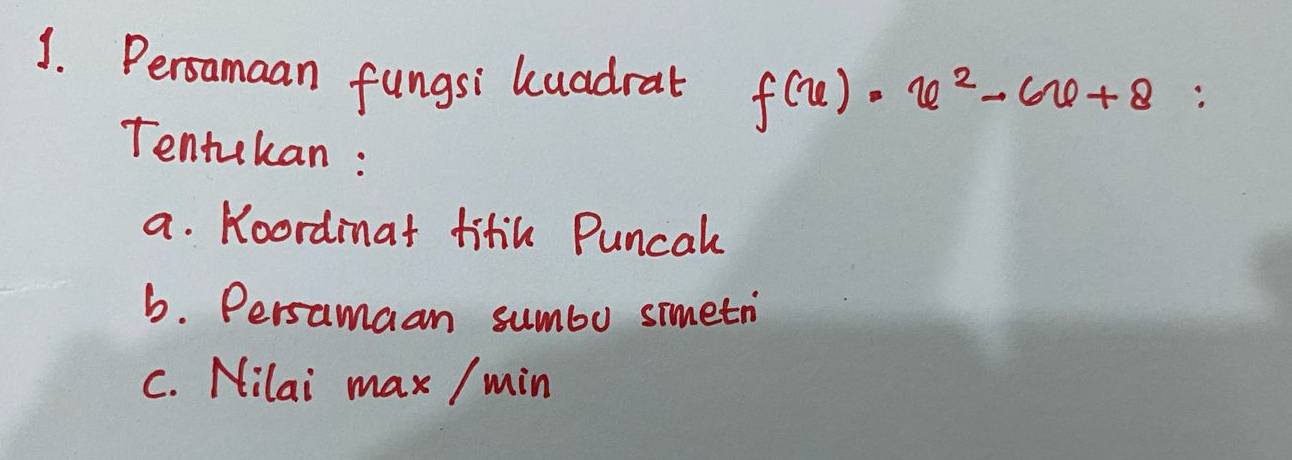 1. Persamaan fungsi kuadrat f(x) = x² - 6x + 8 :
Tentukan :
a. Koordinat titik Puncak
b. Persamaan sumbu simetri
c. Nilai max / min